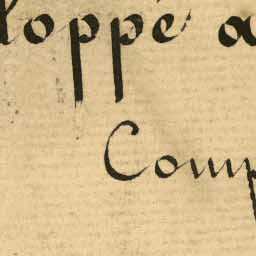 loppé
Comp